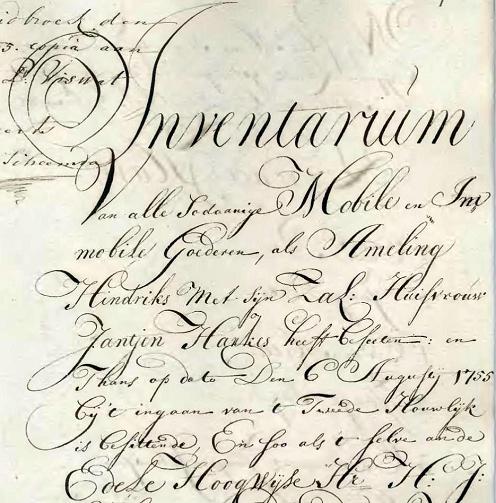 idbroek den
5. copia aan
Inventarium
Van alle Sodaanige Mobile en Im
mobile Goederen, als Ameling
Hindriks Met sijn Zal: Huisvrouw
Jantjen Hankes heeft beseeten: en
Thans op dato Den 6 Augustij 1755
bij 't ingaan van 't Tweede Houwlijk
is besittende, En soo als 't selve an de
Edele Hoog Wijse Hr. H: J: